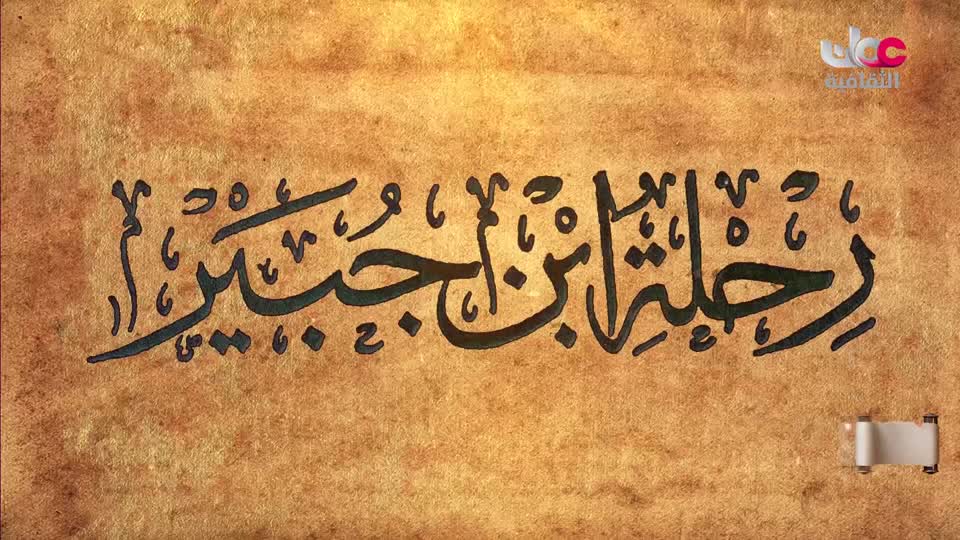 عمان
الثقافية
رِحْلَةِ ابْنِ جُبَيْر